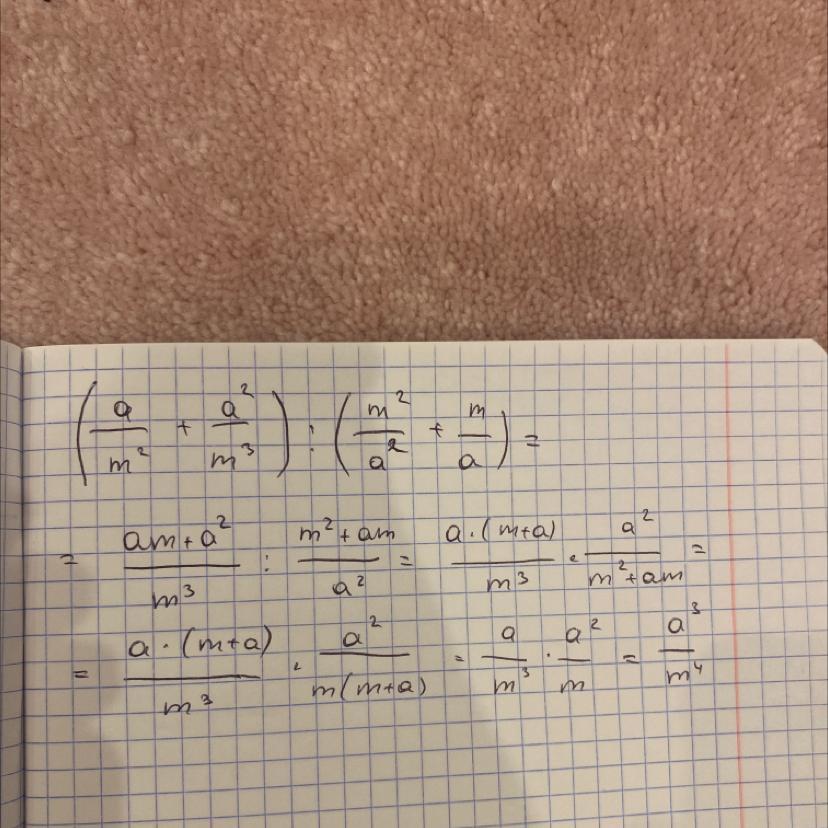 (a/m² + a²/m³) : (m²/a² + m/a) =
= (am+a²)/m³ : (m²+am)/a² = (a·(m+a))/m³ · a²/(m²+am) =
= (a·(m+a))/m³ · a²/(m(m+a)) = a/m³ · a²/m = a³/m⁴